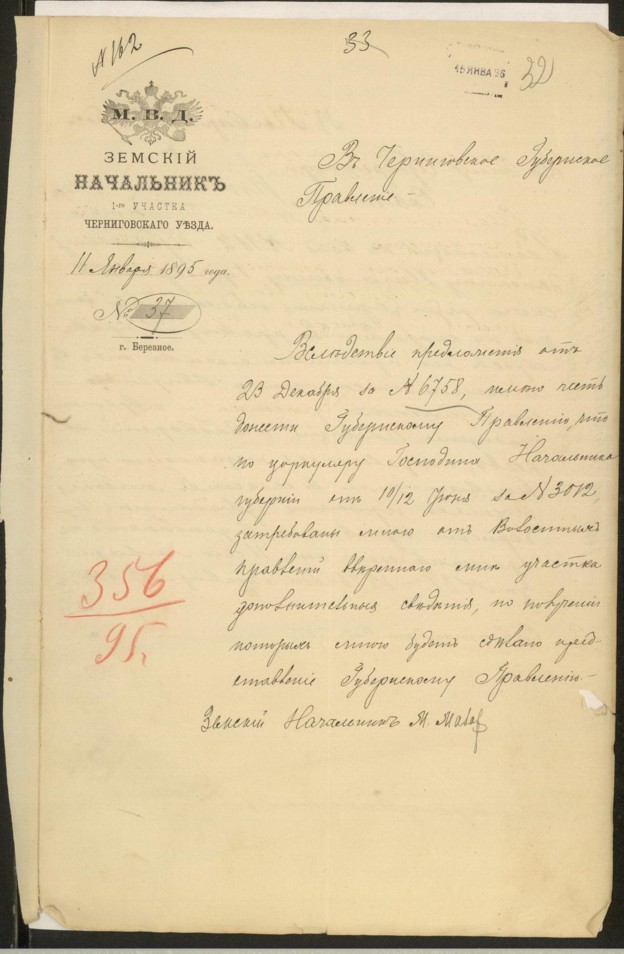 № 162
33
15 ЯНВА 96
32
М. В. Д.
ЗЕМСКІЙ
НАЧАЛЬНИКЪ
1-го УЧАСТКА
ЧЕРНИГОВСКАГО УѢЗДА.
11 Января 1895 года.
№ 37
г. Березное.
Въ Черниговское Губернское
Правленіе
Вслѣдствіе предложенія отъ
23 Декабря за № 6758, имѣю честь
донести Губернскому Правленію, что
по циркуляру Господина Начальника
губерніи отъ 10/12 Іюня за № 3012,
затребованы мною отъ Волостныхъ
правленій ввѣреннаго мнѣ участка
дополнительныя свѣдѣнія, по полученіи
которыхъ мною будетъ сдѣлано пред-
ставленіе Губернскому Правленію.
Земскій Начальникъ М.
356
95.